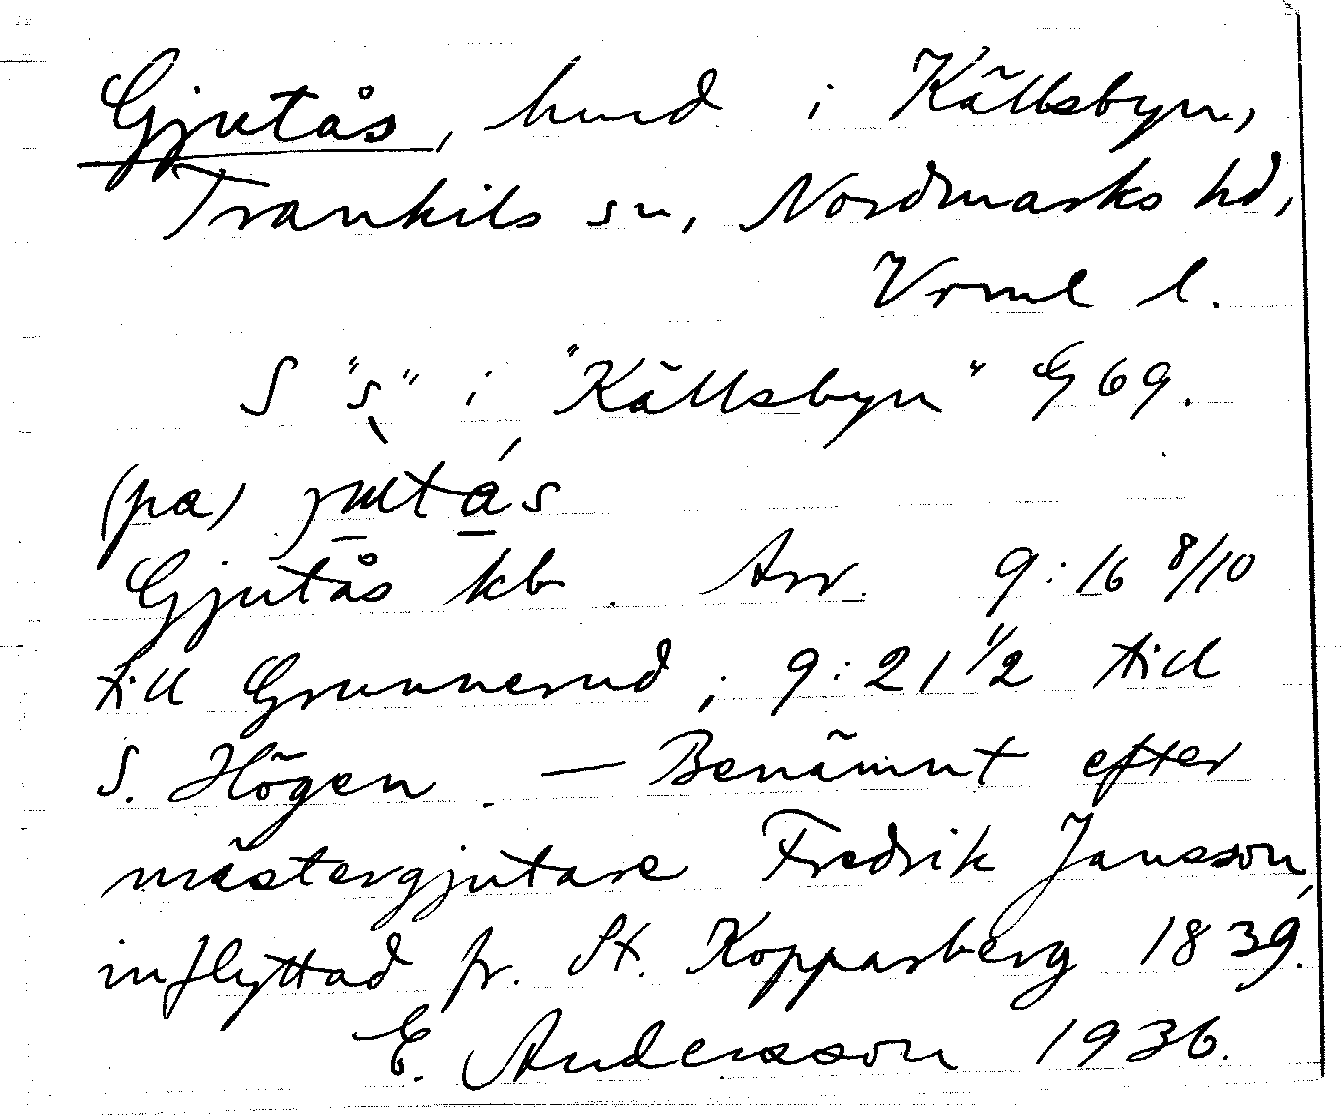 Gjutås, hmd i Källsbyn,
Trankils sn, Nordmarks hd,
Vrml l.
S "s" i "Källsbyn" G 69.
(pa) jutás
Gjutås kb. Arr. 9:16 8/10
till Grunnerud, 9:21 1/2 till
S. Högen. — Benämnt efter
mästergjutare Fredrik Jansson,
inflyttad fr. St. Kopparberg 1839.
E. Andersson 1936.